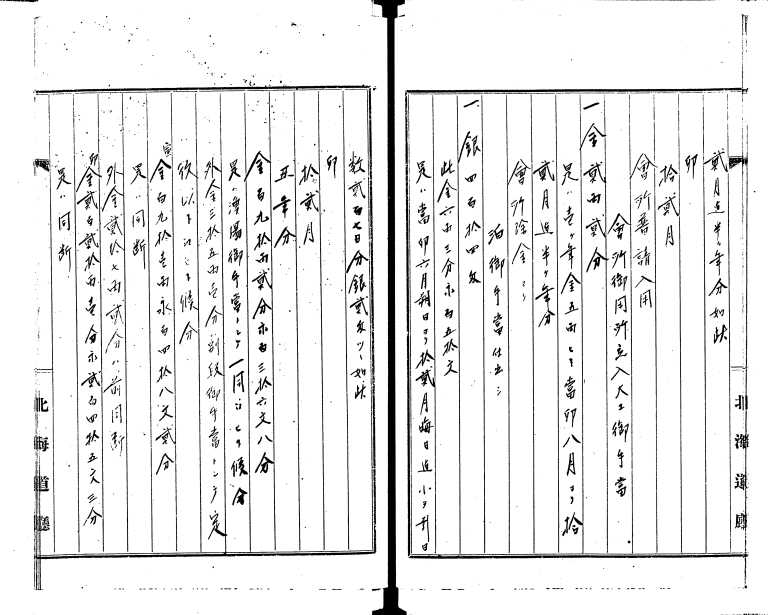 貳月迄半ケ年分如此
卯
拾貳月
會所普請入用
會所御用所立入大工御手當
一金貳両貳分
是ハ壱ケ年金五両ツヽ當卯八月ヨリ拾
貳月迄半ケ年分
會所除金ヨリ
泊御手當仕出シ
一銀四百拾四匁
此金六両三分永百五拾文
是ハ當卯六月朔日ヨリ拾貳月晦日迄小ヲ引日
數貳百七日分銀貳匁ツヽ如此
卯
拾貳月
五年分
金百九拾両貳分永百三拾六文八分
是ハ漁場御手當トシテ一同
外金三拾五両壱分別段御手當トシテ定
候分
金百九拾壱両永百四拾八文貳分
是ハ同断
外金貳拾七両貳分ハ前同断
卯金貳百貳拾両壱分永貳百四拾五文三分
是ハ同断
北海道廳
北海道廳